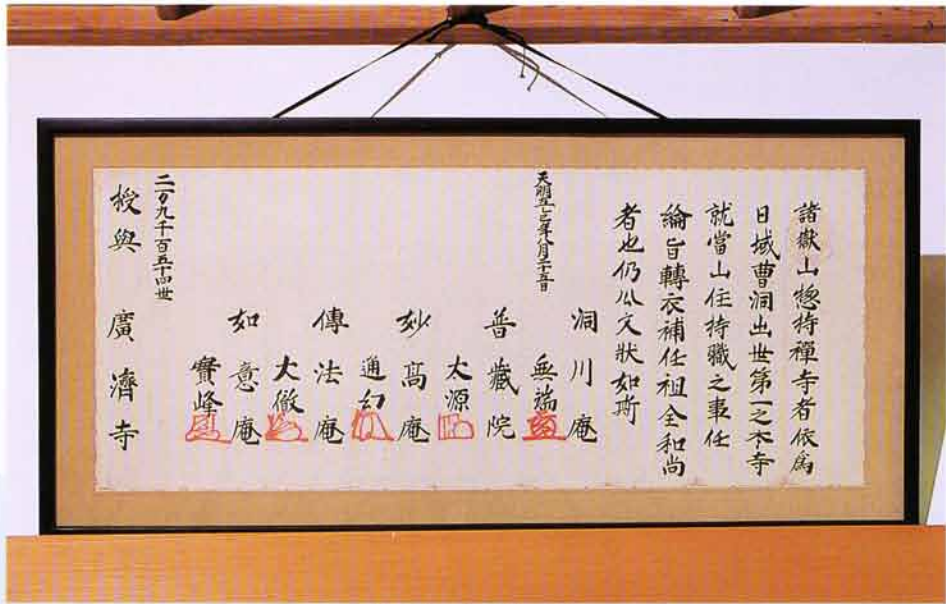 諸嶽山惣持禪寺者依爲
日域曹洞出世第一之本寺
就當山住持職之事任
綸旨轉衣補任祖全和尚
者也仍公文狀如斯
天明五乙巳年八月二十五日
洞川庵
無端
普藏院
太源
妙高庵
通幻
傳法庵
大徹
如意庵
實峰
二万九千百五十四世
授與 廣濟寺